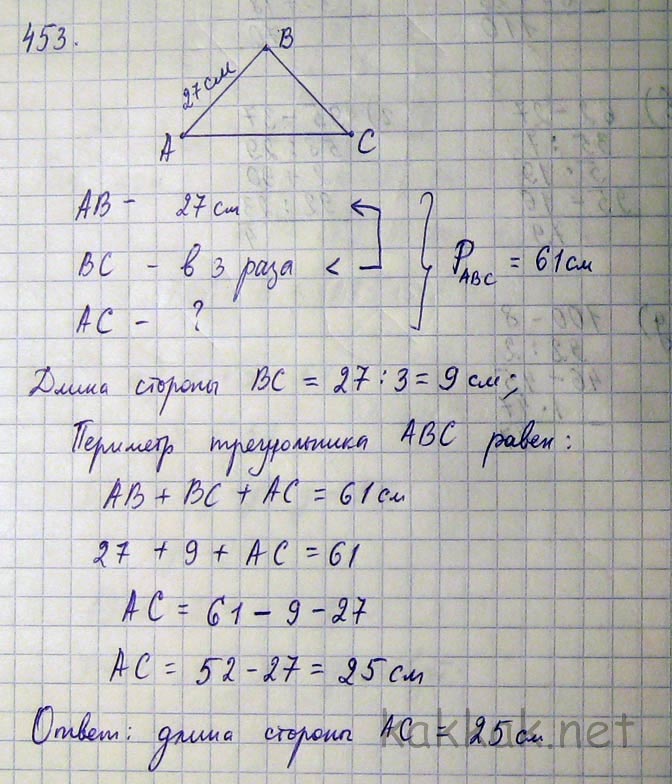 453.
B
27 см
A
C
AB - 27 см
BC - в 3 раза <
AC - ?
P ABC = 61 см
Длина стороны BC = 27 : 3 = 9 см;
Периметр треугольника ABC равен:
AB + BC + AC = 61 см
27 + 9 + AC = 61
AC = 61 - 9 - 27
AC = 52 - 27 = 25 см
Ответ: длина стороны AC = 25 см
kakkak.net